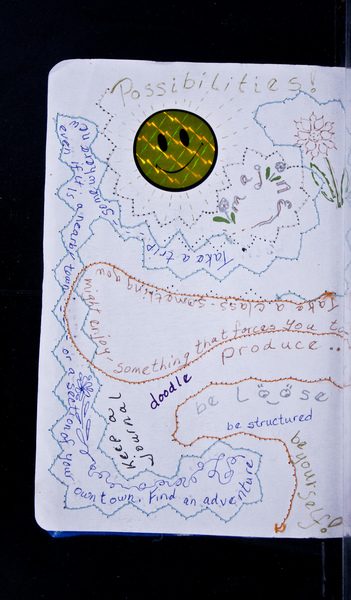 Possibilities!
Imagine
Take a trip
Some
you explore
even if it is a nearby town
or a section of your
own town. Find an adventure!
Take a class - something you
might enjoy
something that forces you to
produce...
doodle
Keep a
Journal
be Loose
be structured
be yourself